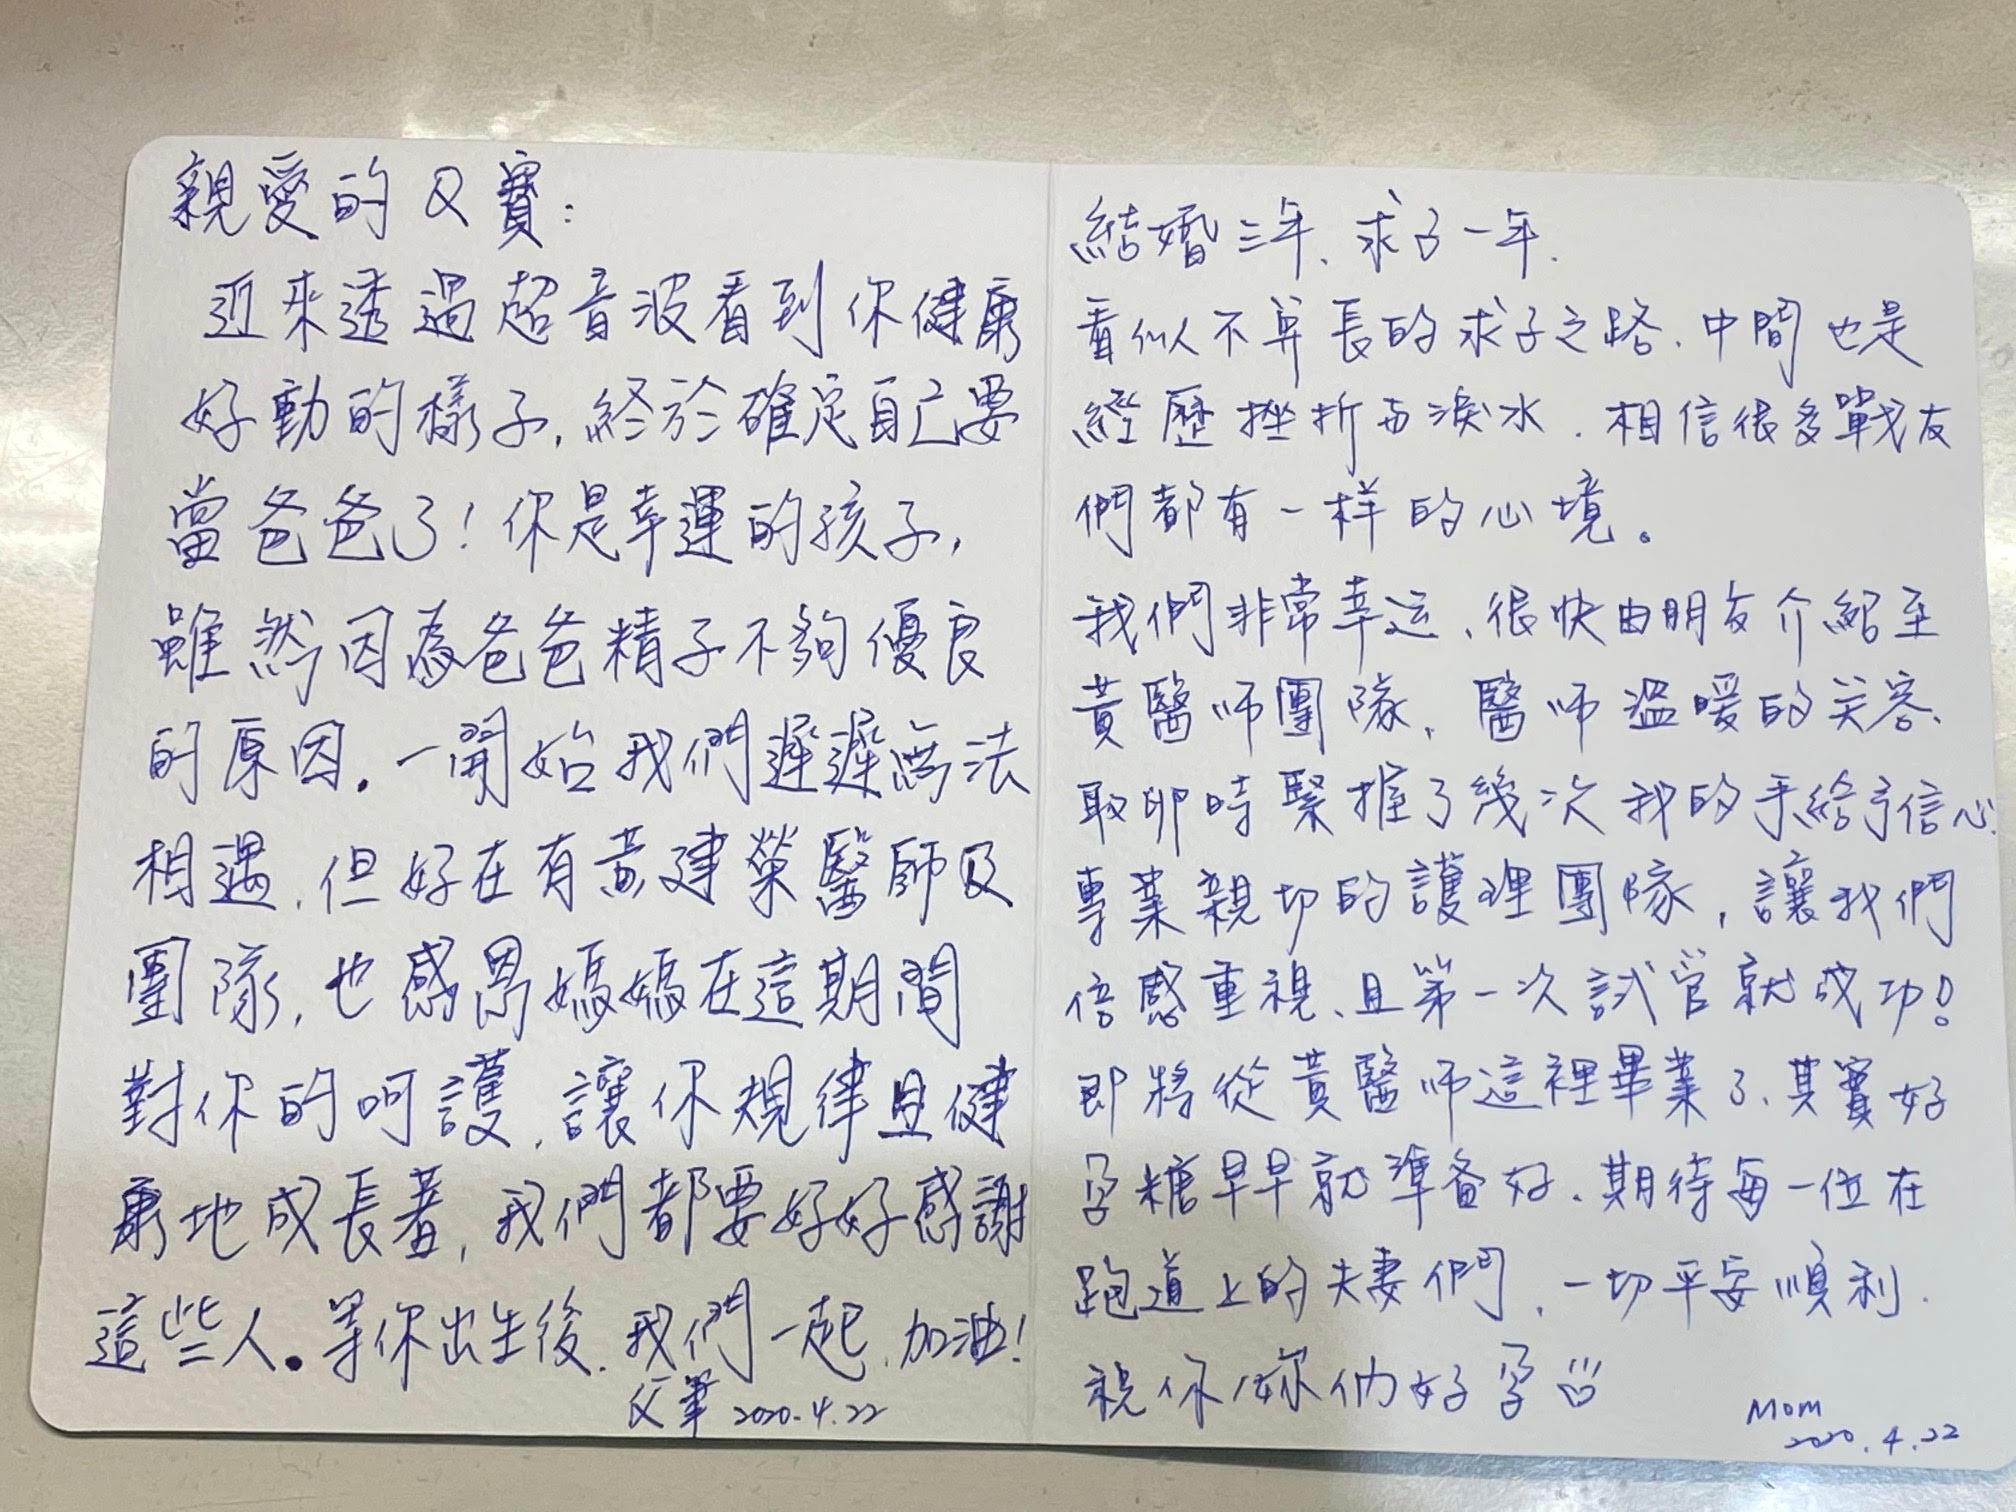 親愛的Q寶：
近來透過超音波看到你健康
好動的樣子，終於確定自己要
當爸爸了！你是幸運的孩子，
雖然因為爸爸精子不夠優良
的原因。一開始我們遲遲無法
相遇，但好在有黃建榮醫師及
團隊，也感恩媽媽在這期間
對你的呵護，讓你規律且健
康地成長著，我們都要好好感謝
這些人。等你出生後，我們一起，加油！
父筆 2020.4.22
結婚三年、求子一年.
看似不算長的求子之路、中間也是
經歷挫折與淚水．相信很多戰友
們都有一样的心境。
我們非常幸运、很快由朋友介紹至
黃醫师團隊，醫师溫暖的笑容、
取卵時緊握了幾次我的手給予信心.
專業親切的護理團隊，讓我們
倍感重視、且第一次試管就成功！
即將從黃醫师這裡畢業了、其實好
孕糖早早就準备好、期待每一位在
跑道上的夫妻們，一切平安順利.
祝你/妳們好孕
Mom
2020.4.22